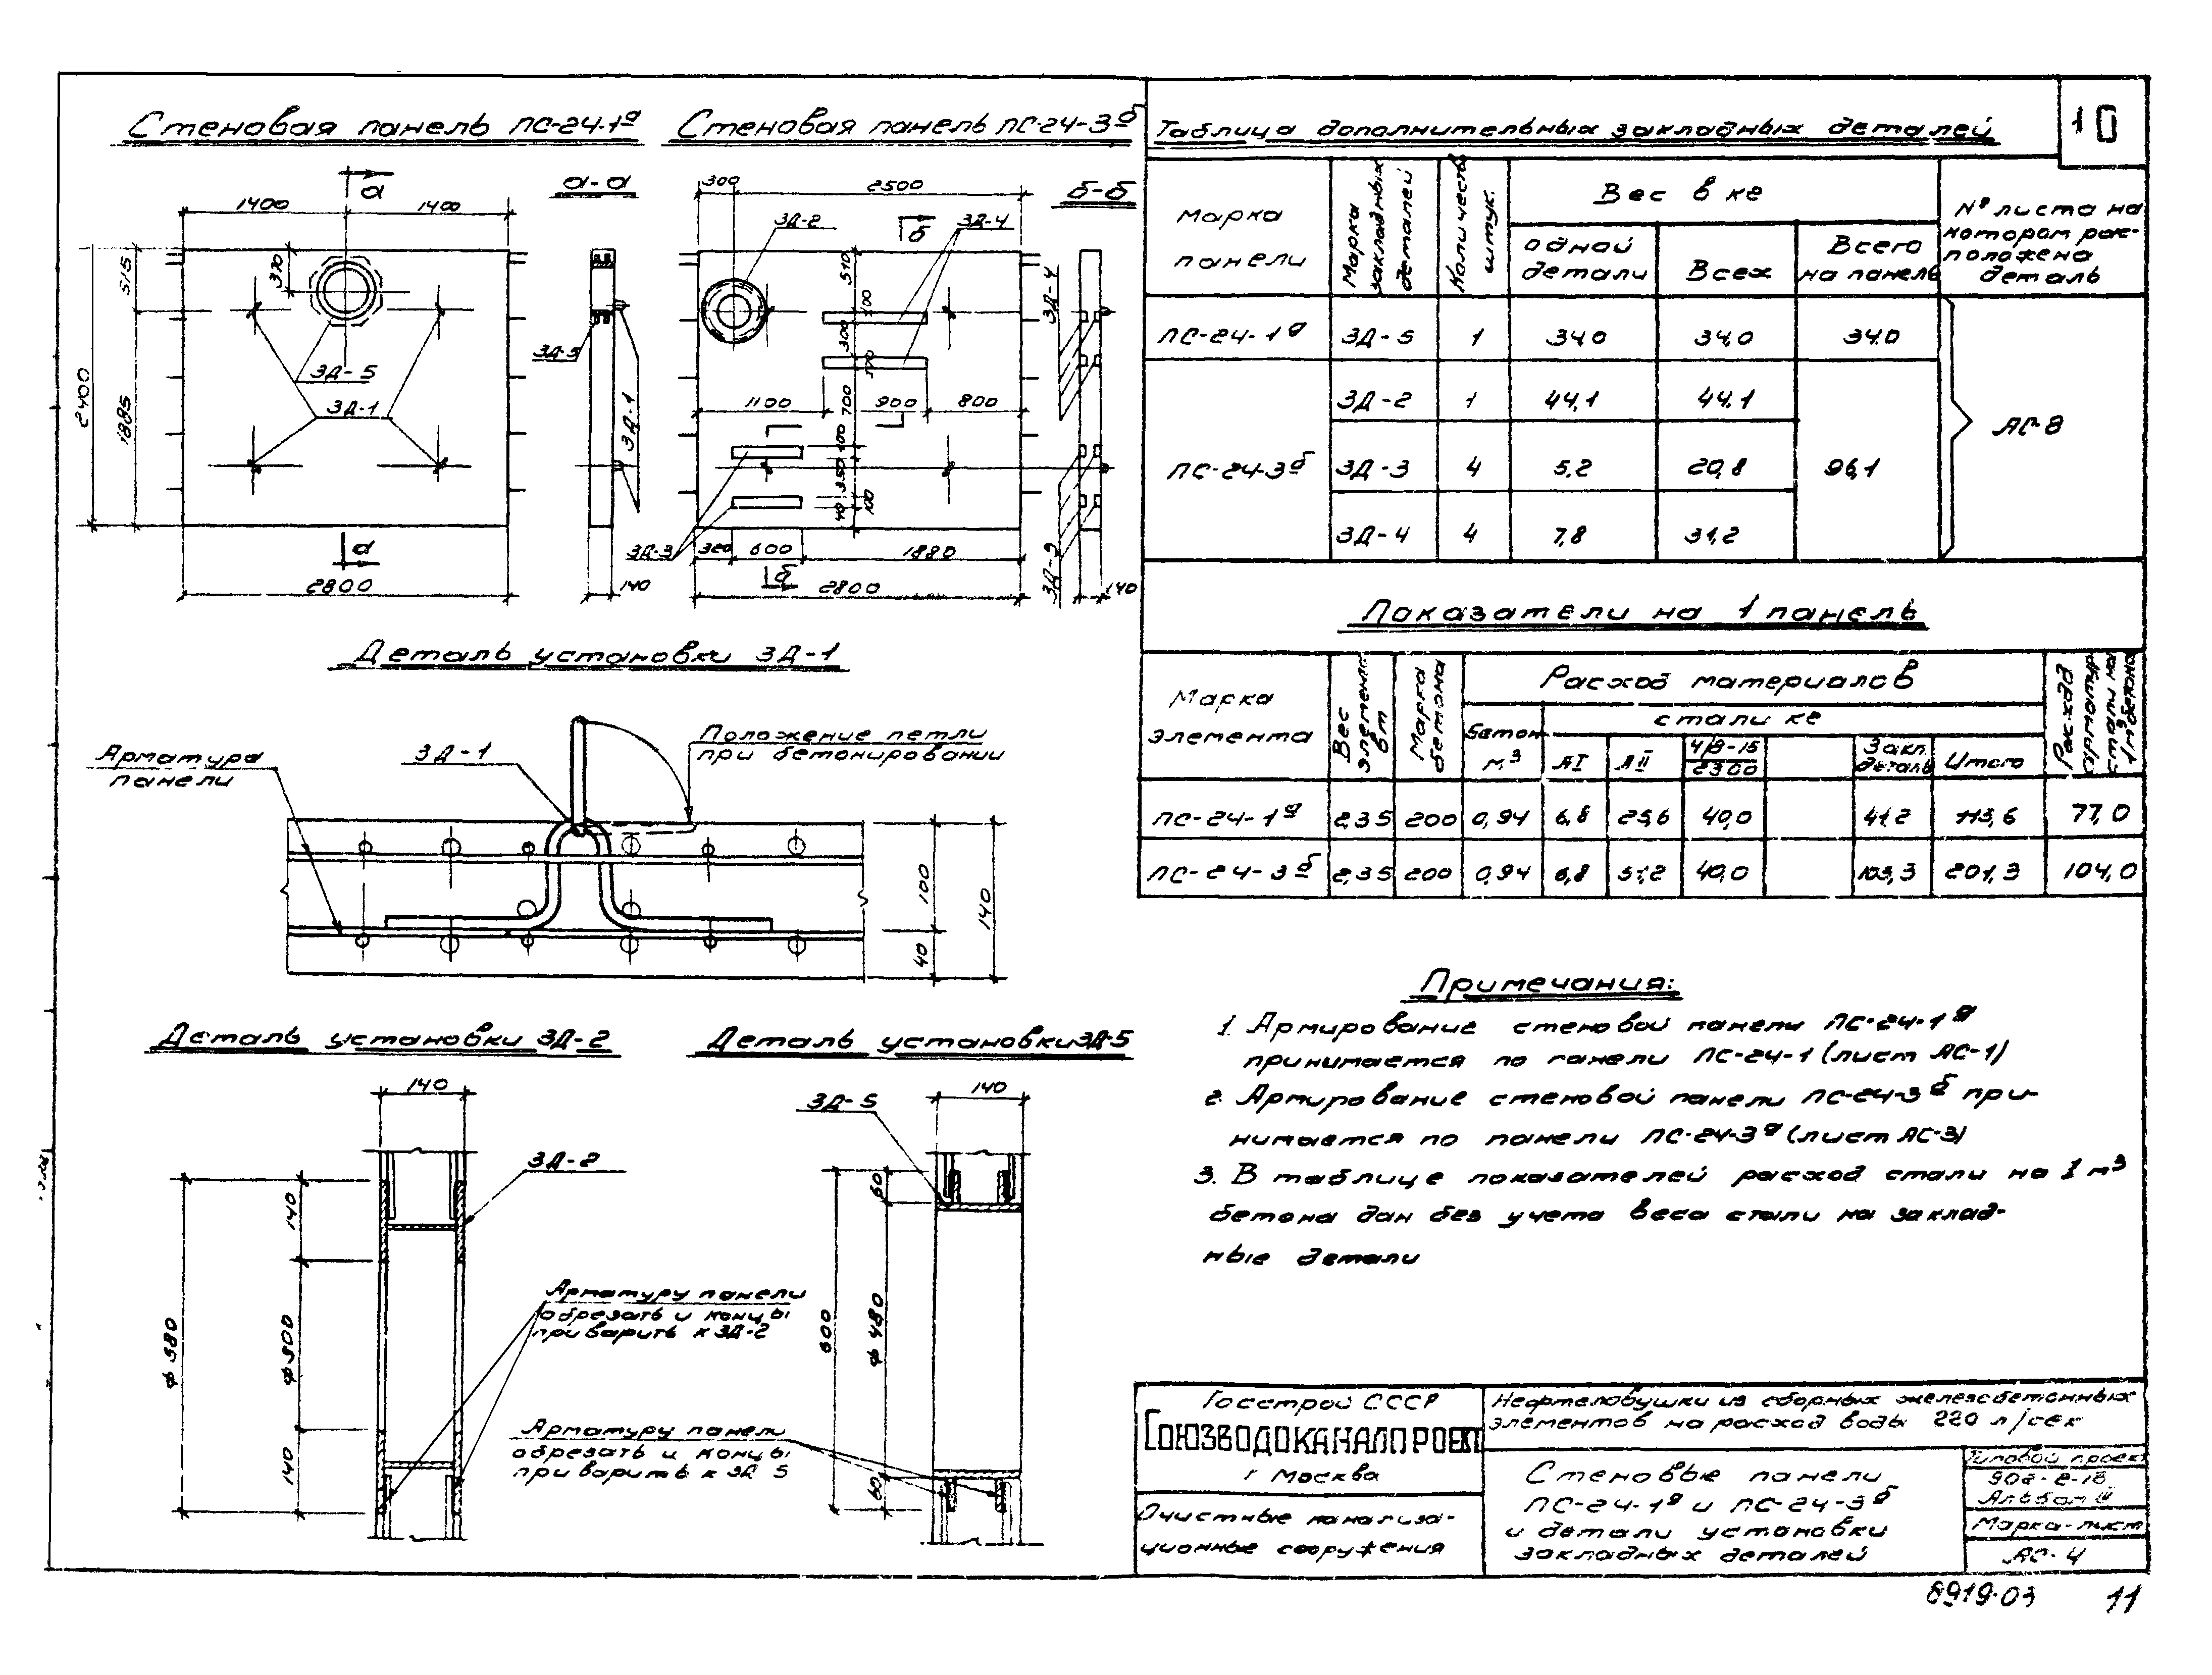 10
Стеновая панель ПС-24-1а
Стеновая панель ПС-24-3б
а
1400
1400
а-а
515
370
2400
1885
ЗД-5
ЗД-1
а
2800
ЗД-5
ЗД-1
140
300
2500
б-б
ЗД-2
б
ЗД-4
510
100
300
100
1100
700
900
800
100
350
100
40
ЗД-3
320
600
1880
б
2800
ЗД-4
ЗД-3
140
Деталь установки ЗД-1
Арматура
панели
ЗД-1
Положение петли
при бетонировании
100
40
140
Деталь установки ЗД-2
140
ЗД-2
140
ф 300
140
ф 580
Арматуру панели
обрезать и концы
приварить к ЗД-2
Деталь установки ЗД-5
ЗД-5
140
60
ф 480
60
600
Арматуру панели
обрезать и концы
приварить к ЗД 5
Таблица дополнительных закладных деталей
Марка панели
Марка закладных деталей
Количеств штук.
Вес в кг
одной детали
Всех
Всего на панель
№ листа на котором рас-положена деталь
ПС-24-1а ЗД-5 1 34,0 34,0 34,0
ПС-24-3б ЗД-2 1 44,1 44,1 96,1
ЗД-3 4 5,2 20,8
ЗД-4 4 7,8 31,2
АС-8
Показатели на 1 панель
Марка элемента
Вес элемента вт
Марка бетона
Расход материалов
бетон м³
стали кг
АI
АII
4/8-15
2300
Закл. деталь
Итого
Расход арматур стали на 1м³ бетона
ПС-24-1а 2,35 200 0,94 6,8 25,6 40,0 41,2 113,6 77,0
ПС-24-3б 2,35 200 0,94 6,8 51,2 40,0 103,3 201,3 104,0
Примечания:
1. Армирование стеновой панели ПС-24-1а
принимается по панели ПС-24-1 (лист АС-1)
2. Армирование стеновой панели ПС-24-3б при-
нимается по панели ПС-24-3а (лист АС-3)
3. В таблице показателей расход стали на 1 м³
бетона дан без учета веса стали на заклад-
ные детали
Госстрой СССР
СОЮЗВОДОКАНАЛПРОЕКТ
г Москва
Очистные канализа-
ционные сооружения
Нефтеловушки из сборных железобетонных
элементов на расход воды 220 л/сек
Стеновые панели
ПС-24-1а и ПС-24-3б
и детали установки
закладных деталей
Типовой проект
902-2-18
Альбом III
Марка-лист
АС-4
8919-03
11